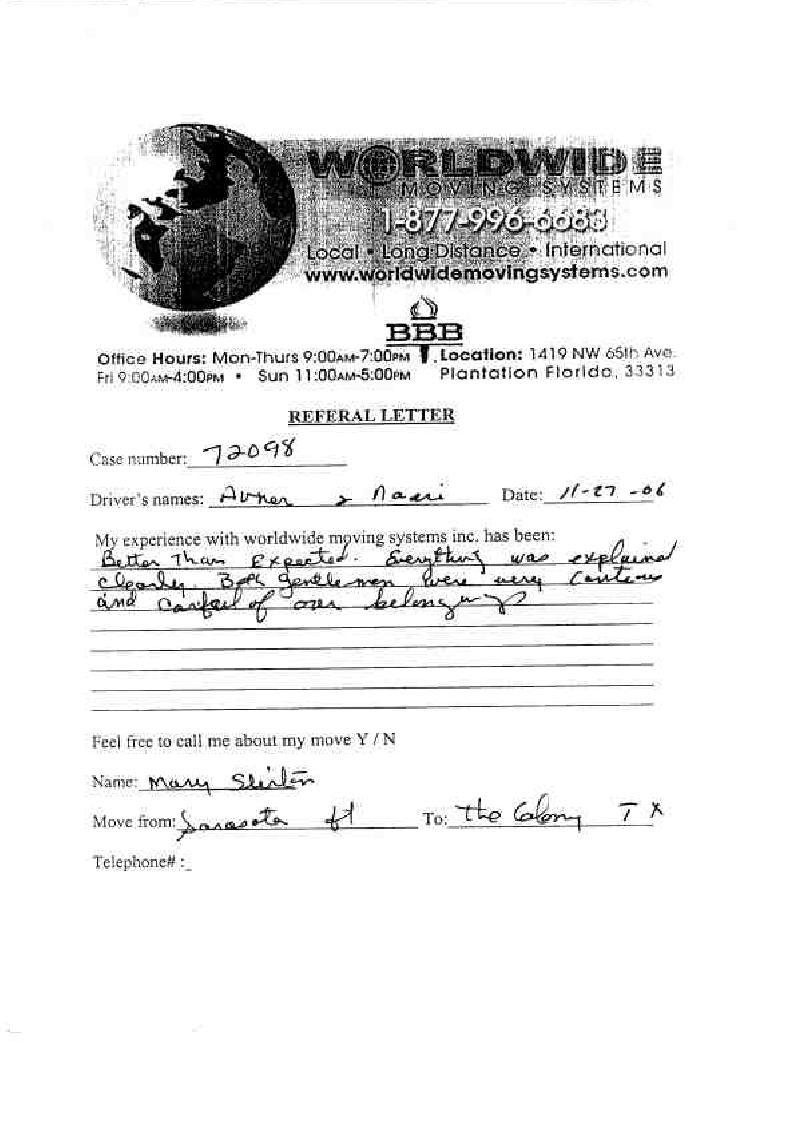 WORLDWIDE
MOVING SYSTEMS
1-877-996-6683
Local • Long Distance • International
www.worldwidemovingsystems.com
BBB
Office Hours: Mon-Thurs 9:00AM-7:00PM Location: 1419 NW 65th Ave.
Fri 9:00AM-4:00PM • Sun 11:00AM-5:00PM Plantation Florida, 33313
REFERAL LETTER
Case number: 72098
Driver's names: Avner & Date: 11-27-06
My experience with worldwide moving systems inc. has been:
Better Than Expected. Everything was explained
clearly. Both gentlemen were very
and of our belongings
Feel free to call me about my move Y / N
Name: Mary
Move from: Sarasota fl To: The Colony TX
Telephone# :_